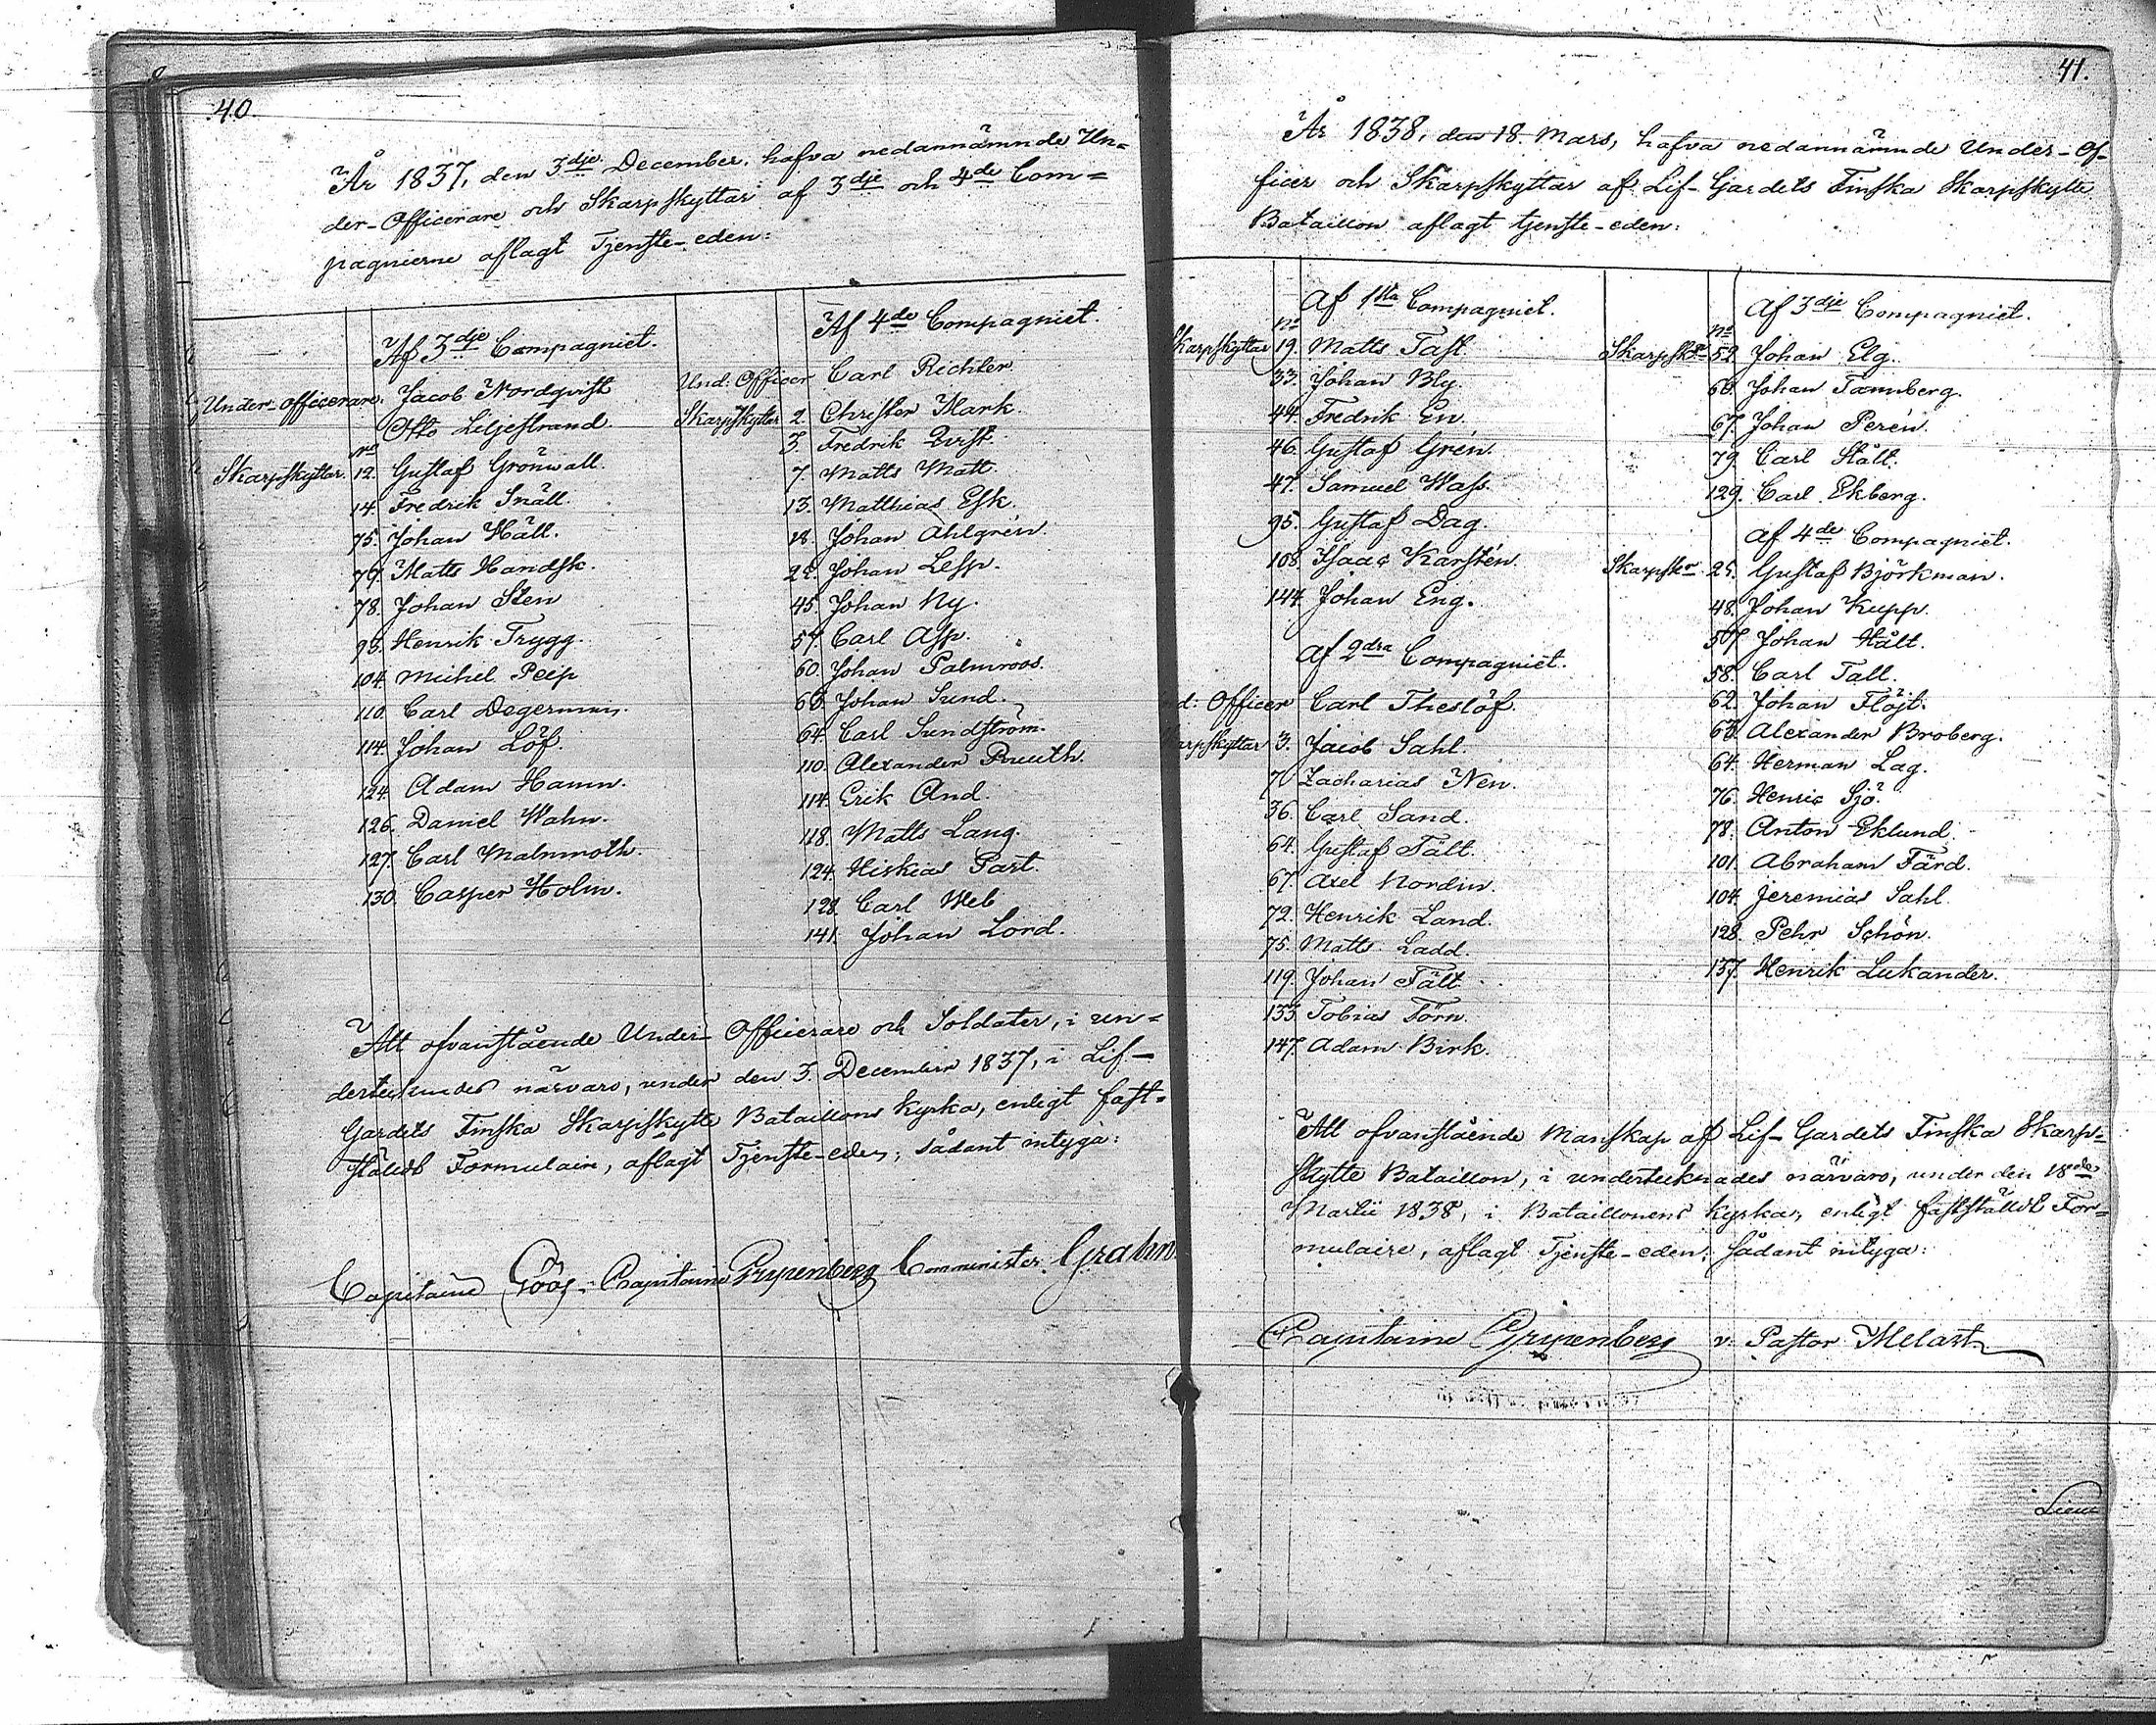 40.
År 1837, den 3dje December, hafva nedannämnde Un=
der-Officerare och Skarpskyttar af 3dje och 4de Com=
pagnierne aflagt Tjenste-eden:
Af 3dje Compagniet.
Under-officerare. Jacob Nordqvist
Otto Liljestrand
No
Skarpskyttar. 12. Gustaf Grönwall.
14. Fredrik Snäll.
75. Johan Häll.
76. Matts Handsk.
78. Johan Sten
95. Henrik Trygg.
104. Michel Peip
110. Carl Degerman.
114. Johan Löf.
124. Adam Hamn.
126. Daniel Wahn.
127. Carl Malmroth.
130. Casper Holm.
Af 4de Compagniet.
Und. Officer Carl Richter
Skarpskyttar 2. Christer Mark.
3. Fredrik Qvist.
7. Matts Matt.
13. Matthias Esk.
18. Johan Ahlgrén.
Johan Lesp.
45. Johan Ny.
57. Carl Asp.
60. Johan Palmroos.
Johan Sund.
64. Carl Sundström.
110. Alexander Reuth.
114. Erik And.
118. Matts Lang.
124. Hiskias Part.
128. Carl Web
141. Johan Lord.
Att ofvanstående Under-Officerare och Soldater, i un=
dertecknades närvaro, under den 3. December 1837, i Lif-
Gardets Finska Skarpskytte Bataillons kyrka, enligt fast=
ställdt Formulaire, aflagt Tjenste-eden; sådant intyga:
Capitaine Göös. Capitaine Gripenberg Comminister Grahn.
41.
År 1838, den 18. Mars, hafva nedannämnde Under-Of-
ficer och Skarpskyttar af Lif-Gardets Finska Skarpskytte
Bataillon aflagt tjenste-eden:
Af 1sta Compagniet.
No
Skarpskyttar 19. Matts Tast.
33. Johan Bly.
44. Fredrik En.
46. Gustaf Grén.
47. Samuel Wass.
95. Gustaf Dag.
108. Isaac Karstén.
144. Johan Eng.
Af 2dra Compagniet.
Und: Officer Carl Theslöf.
Skarpskyttar 3. Jacob Sahl.
Zacharias Nén.
36. Carl Sand.
64. Gustaf Fält.
67. Axel Nordin.
72. Henrik Land.
75. Matts Ladd.
119. Johan Fält
133. Tobias Törn.
147. Adam Birk.
Af 3dje Compagniet.
No
Skarpskr 52. Johan Elg.
Johan Tannberg.
67. Johan Perén.
79. Carl Stålt.
129. Carl Ekberg.
Af 4de Compagniet.
Skarpskr 25. Gustaf Björkman.
48. Johan Kupp.
Johan Hålt.
58. Carl Tall.
62. Johan Flöjt.
Alexander Broberg.
64. Herman Lag.
76. Henric Sjö.
78. Anton Eklund.
101. Abraham Färd.
104. Jeremias Sahl.
128. Pehr Schön.
137. Henrik Lukander.
Att ofvanstående Manskap af Lif-Gardets Finska Skarp=
skytte Bataillon, i undertecknades närvaro, under den 18de
Martii 1838, i Bataillonens kyrka, enligt fastställdt For=
mulaire, aflagt Tjenste-eden; sådant intyga:
Capitaine Gripenberg v. Pastor Melart
Lieut